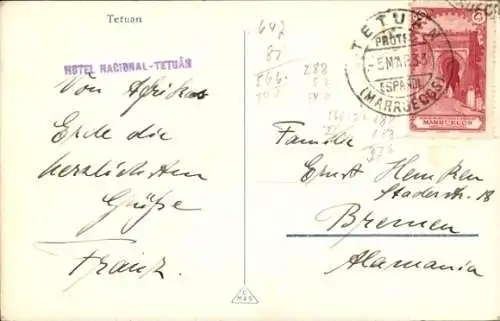 Tetuan
HOTEL NACIONAL-TETUÁN
Von Afrikas
Erde die
herzlichsten
Grüße
Franz.
TETUAN
5 MAR 33
ESPAÑOL
(MARRUECOS)
MARRUECOS
Familie
Ernst Hemken
Staderstr. 18
Bremen
Alamania